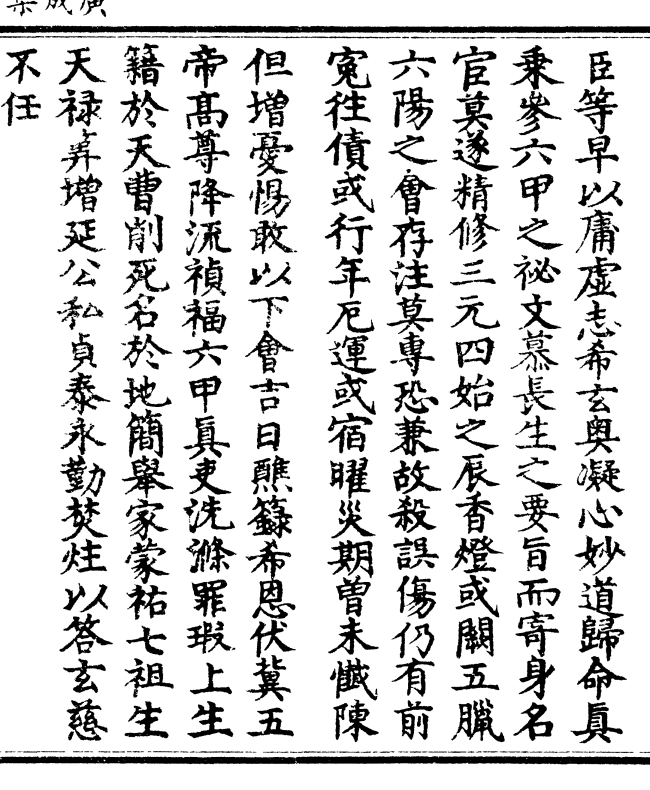 臣等早以庸虛志希玄奧凝心妙道歸命眞
乘參六甲之祕文慕長生之要旨而寄身名
宦莫遂精修三元四始之辰香燈或闕五臘
六陽之會存注莫專恐兼故殺誤傷仍有前
寃往債或行年厄運或宿曜災期曽未懺陳
但增憂惕敢以下會吉日醮籙希恩伏冀五
帝髙尊降流禎福六甲眞吏洗滌罪瑕上生
籍於天曹削死名於地簡舉家蒙祐七祖生
天祿筭增延公私貞泰永勤焚炷以答玄慈
不任